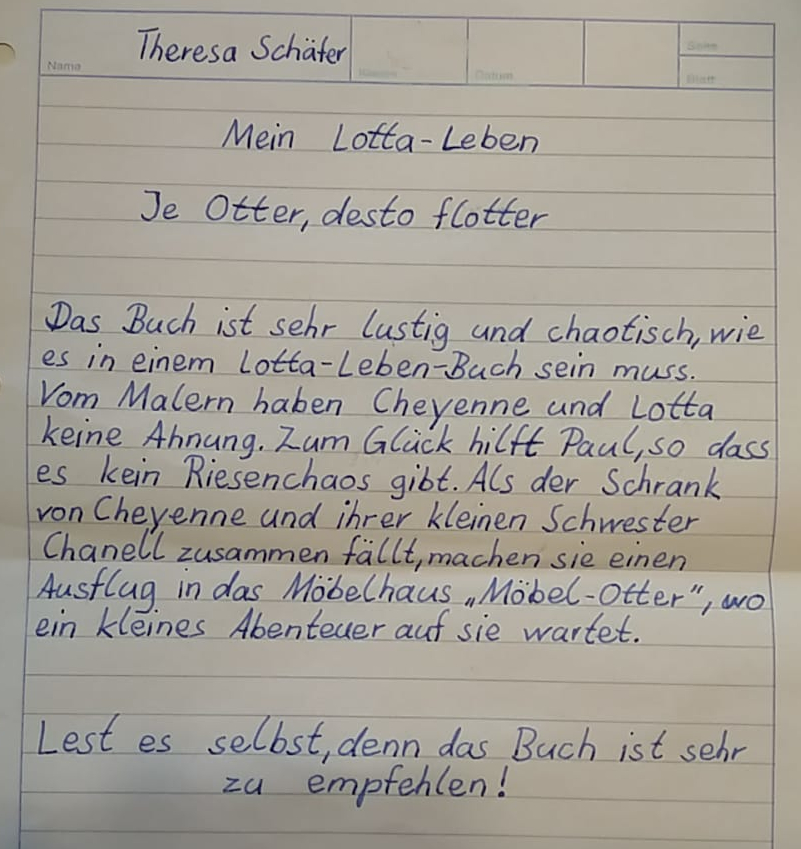 Theresa Schäfer
Name
Klasse
Datum
Seite
Blatt
Mein Lotta-Leben
Je Otter, desto flotter
Das Buch ist sehr lustig und chaotisch, wie
es in einem Lotta-Leben-Buch sein muss.
Vom Malern haben Cheyenne und Lotta
keine Ahnung. Zum Glück hilft Paul, so dass
es kein Riesenchaos gibt. Als der Schrank
von Cheyenne und ihrer kleinen Schwester
Chanell zusammen fällt, machen sie einen
Ausflug in das Möbelhaus „Möbel-Otter“, wo
ein kleines Abenteuer auf sie wartet.
Lest es selbst, denn das Buch ist sehr
zu empfehlen!